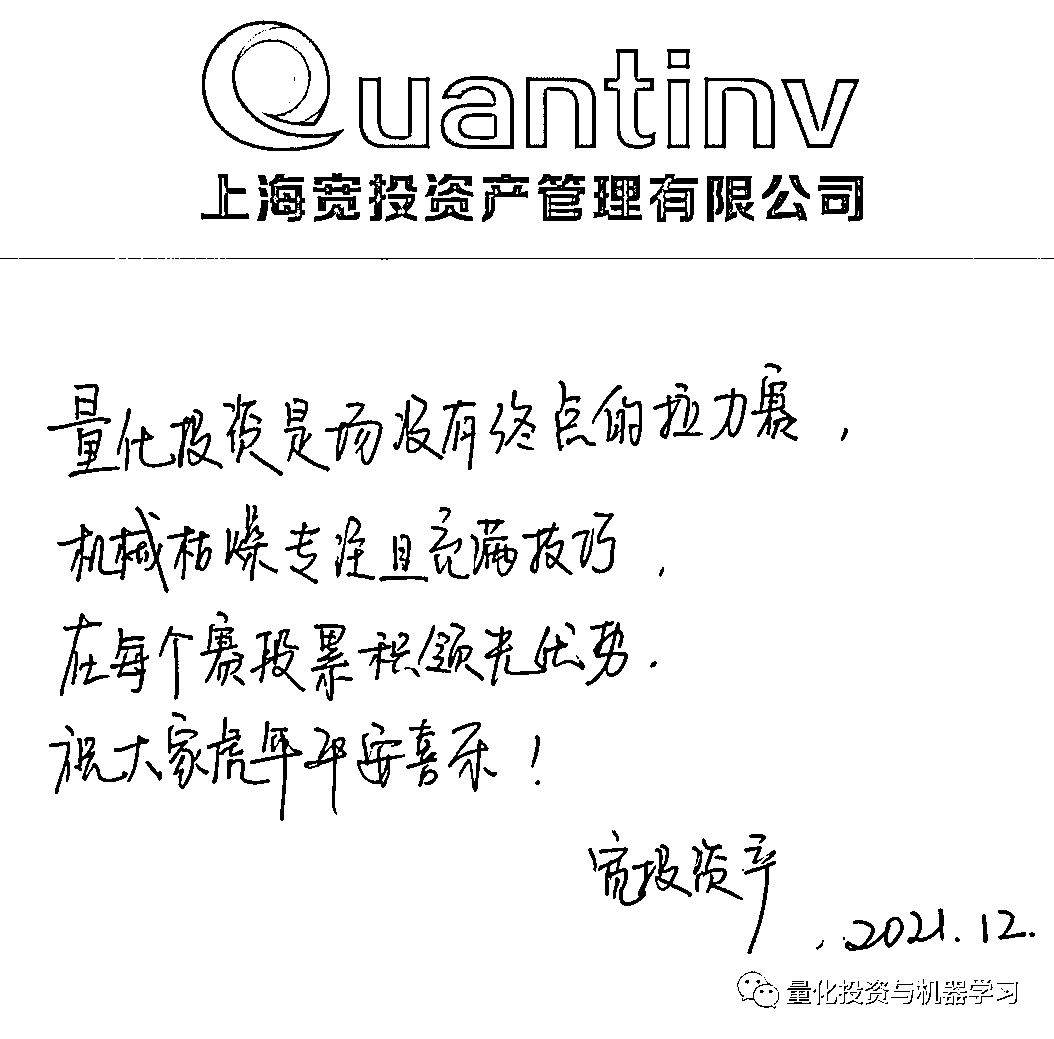 Quantinv
上海宽投资产管理有限公司
量化投资是场没有终点的拉力赛，
机械枯燥专注且充满技巧，
在每个赛段累积领先优势.
祝大家虎年平安喜乐！
宽投资产
.2021.12.
量化投资与机器学习